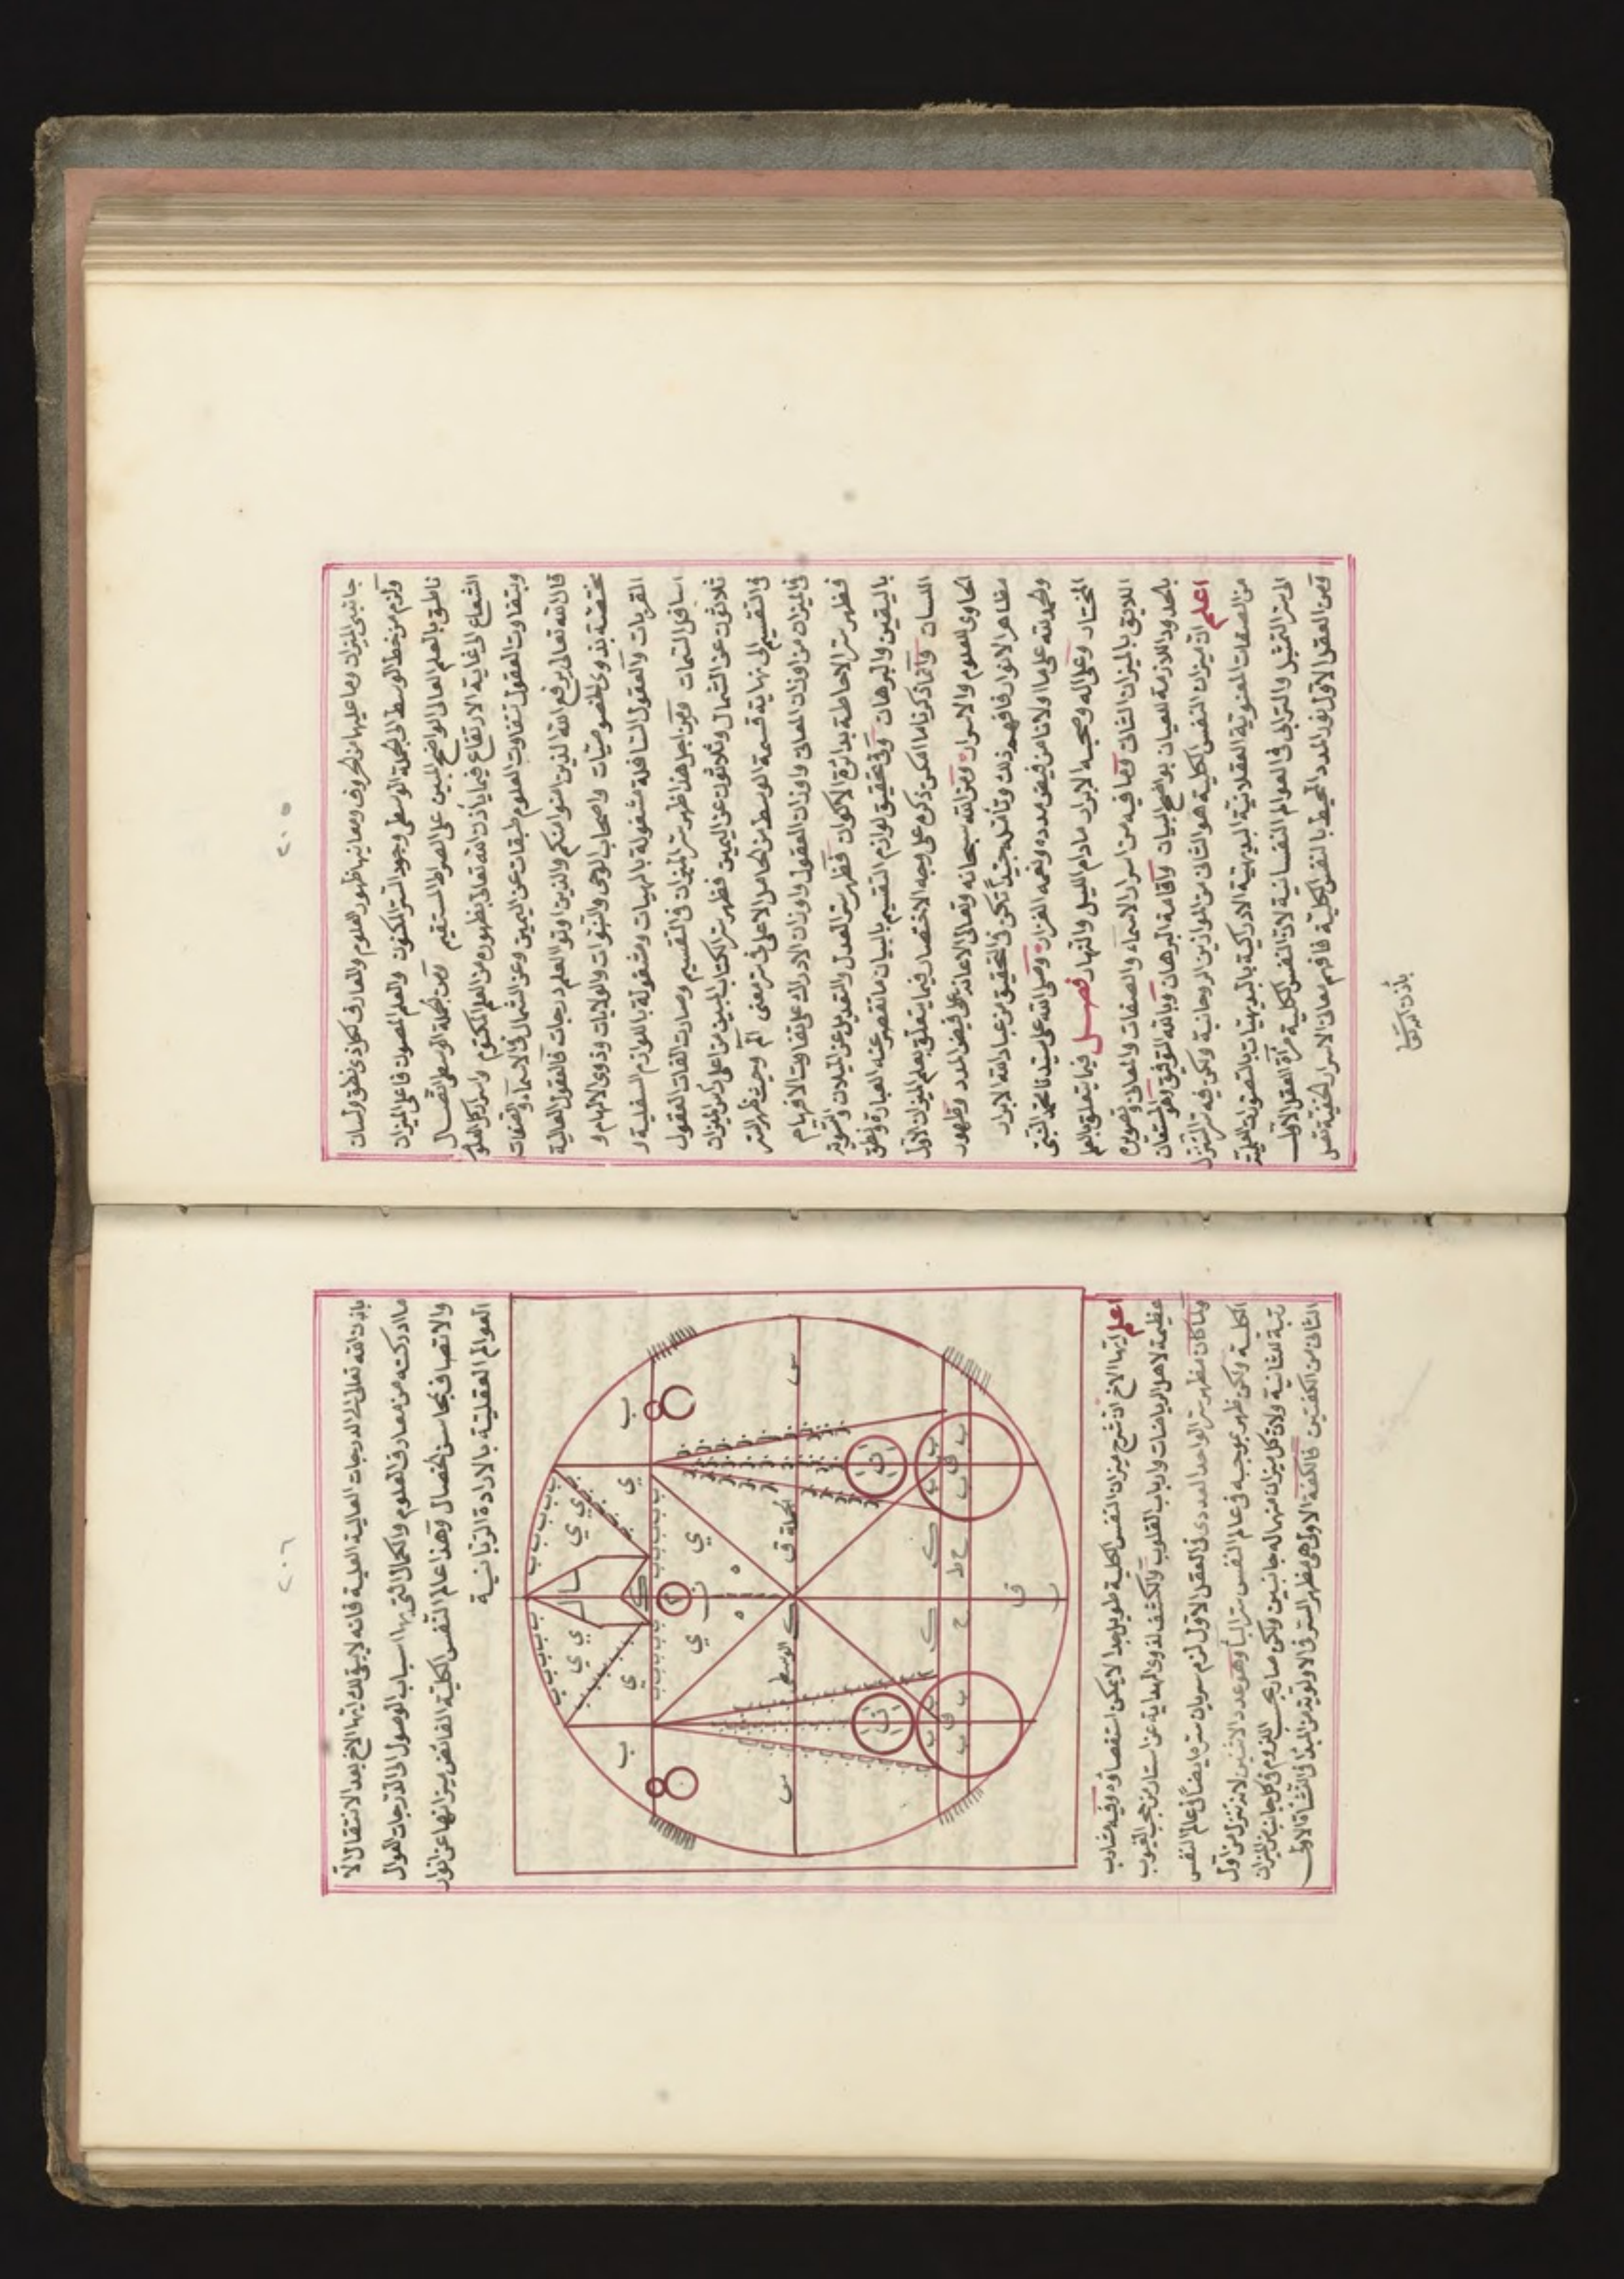 ٢٠٥
جانبي الميزان وما عليها من الحروف ومعانيها ظهور العلوم والمعارف لكل ذي نطق ولسان
ولزم من خط الوسط الى الجملة الوسطى وجود السر المكنون والعلم المصون فاعلى الميزان
ناطق بالعلم العالى الواضح المبين على الصراط المستقيم ومن الجملة الوسطى اتصال
الشعاع الى غاية الارتفاع فيما يأذن الله تعالى بظهوره من العلم المكتوم واسرار كل العلوم
وبتفاوت العقول تتفاوت العلوم طبقات عن اليمين وعن الشمال فى الاسماء والصفات
قال الله تعالى يرفع الله الذين امنوا منكم والذين اوتوا العلم درجات فالعقول العالية
مختصة بذوى الخصوصيات واصحاب الوحى والنبوات والولايات وذوى الالهام و
القربات والعقول السافلة مشغولة بالهيات ومشغولة باللوازم السفلية و
اسافل السمات ومن اجل هذا ظهر سر الميزان فى التقسيم وصارت القات العقول
ثلاثون عن الشمال وثلاثون عن اليمين فظهر سر الكتاب المبين من اعلى رأس الميزان
فى التقسيم الى نهاية قسمة الوسط من الحامل الاعلى فى سر معنى الم وحيث ظهر السر
فى الميزان من اوزان المعانى واوزان العقول واوزان الادراك على تفاوت الافهام
فظهر سر الاحاطة بدائرة الاكوان فظهر سر العدل والتعديل عن الميلان والتسوية
باليقين والبرهان وفى تحقيق لوازم التقسيم بالبيان ما تقصر عنه العبارة ونطق
اللسان وانما ذكرنا ما امكن ذكره على وجه الاختصار فيما يتعلق بعلم الميزان الاول
الحاوى للعلوم والاسرار ومن الله سبحانه وتعالى الاعانة على فيض المدد وظهور
مظاهر الانوار فافهم ذلك وتأمل جيداً تكن فى التحقيق من عباد الله الابرار
والحمد لله على ما اولانا من فيض مدده ونعمه الغزار وصلى الله على سيدنا محمد النبى
المختار وعلى اله وصحبه الابرار مادام الليل والنهار فصل فيما يتعلق بالعلم
اللايق بالميزان الثانى وما فيه من اسرار الاسماء والصفات والمعانى وتصويره
بالحدود اللازمة للعيان بواضح البيان واقامة البرهان وبالله التوفيق وهو المستعان
اعلم ان ميزان النفس الكلية هو الثانى من الموازين الروحانية ولكن فيه سر التنزل
من الصفات المعنوية العقلانية البديهية الادراكية بالبديهيات بالتصورات العلمية
الى سر التمثيل والترائى فى العوالم النفسانية لان النفس الكلية مرآة العقل الاول
ومن العقل الاول نور المدد المحيط بالنفس الكلية فافهم معانى الاسرار الخفية تصل
٢٠٦
باذن الله تعالى الى الدرجات العالية العلية فانه لا يبقى لك ايها الاخ بعد الانتقال الا
ما ادركته من معارف العلوم والكمال التى بها اسباب الوصول الى الدرجات العوال
والاتصاف بمحاسن الخصال وهذا عالم النفس الكلية الفائض ميزانها عن انوار
العوالم العقلية بالارادة الربانية
ب ب ب ب ب ب ب ب
ي ي ي سالم ي ي ي
ب ي ك ي ب
ي ي
س الجملة ق ك الوسطى س
ك ك
ح ط ح
ق
اعلم ايها الاخ ان شرح ميزان النفس الكلية طويل جدا لا يمكن استقصاؤه وفيه مشارب
عظيمة لاهل الرياضات وارباب القلوب والكشف لذوى الهداية عن استار من حجب الغيوب
ولما كان مظهر سر الواحد العددى فى العقل الاول لزم سريان سره ايضاً فى عالم النفس
الكلية ولكن ظهر بموجبه فى عالم النفس سر البا وهو عدد الاثنين لانه تنزل من اول
رتبة للثانية ولان كل ميزان منها له جانبين ولكن صار بحسب اللزوم فى كل جانب من الميزان
الثانى من الكفتين فالكفة الاولى هى مظهر السر فى الاولوية من المبدا فى النشأة الاولى